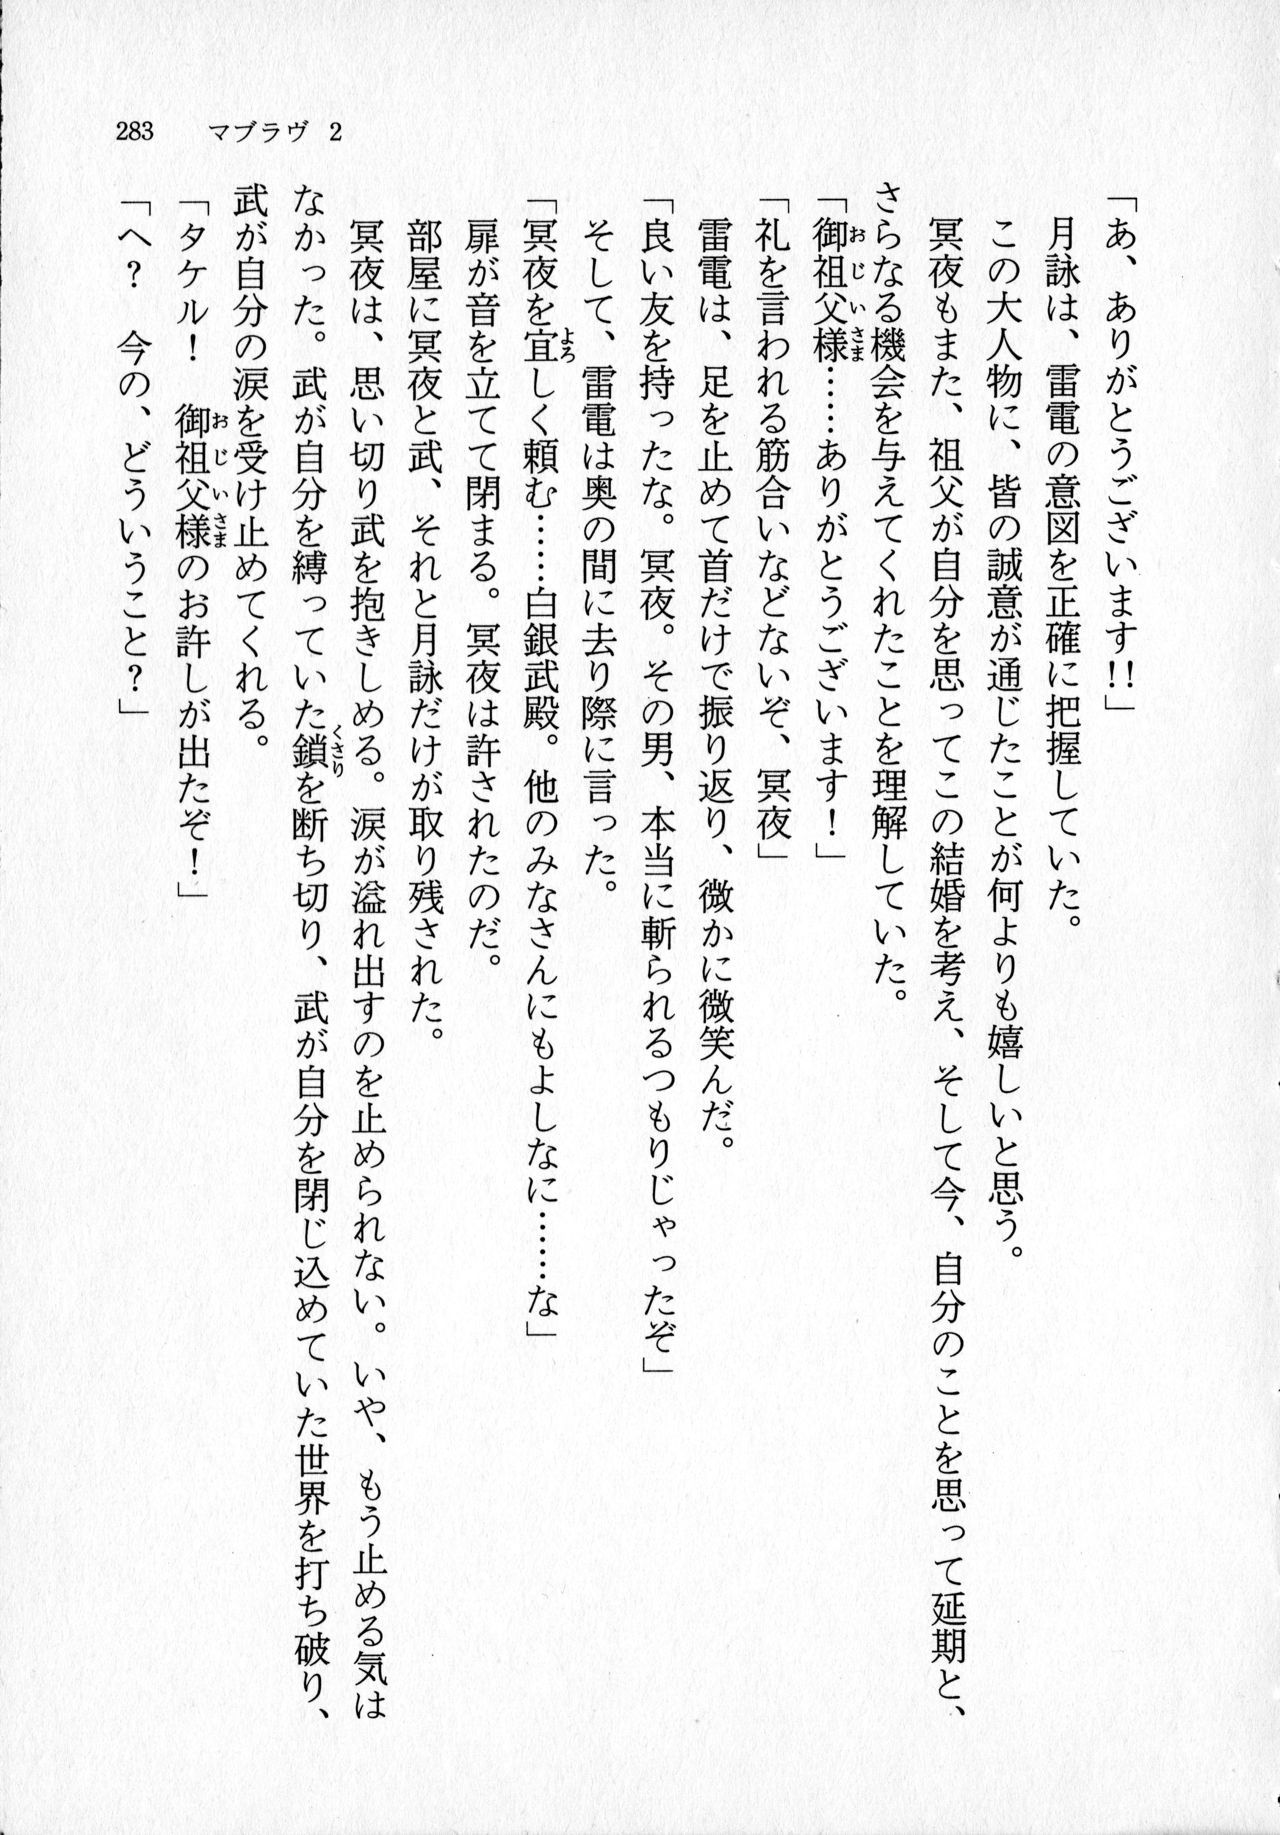 283　マブラヴ 2
「あ、ありがとうございます!!」
月詠は、雷電の意図を正確に把握していた。
この大人物に、皆の誠意が通じたことが何よりも嬉しいと思う。
冥夜もまた、祖父が自分を思ってこの結婚を考え、そして今、自分のことを思って延期と、
さらなる機会を与えてくれたことを理解していた。
「御祖父様……ありがとうございます！」
「礼を言われる筋合いなどないぞ、冥夜」
雷電は、足を止めて首だけで振り返り、微かに微笑んだ。
「良い友を持ったな。冥夜。その男、本当に斬られるつもりじゃったぞ」
そして、雷電は奥の間に去り際に言った。
「冥夜を宜しく頼む……白銀武殿。他のみなさんにもよしなに……な」
扉が音を立てて閉まる。冥夜は許されたのだ。
部屋に冥夜と武、それと月詠だけが取り残された。
冥夜は、思い切り武を抱きしめる。涙が溢れ出すのを止められない。いや、もう止める気は
なかった。武が自分を縛っていた鎖を断ち切り、武が自分を閉じ込めていた世界を打ち破り、
武が自分の涙を受け止めてくれる。
「タケル！　御祖父様のお許しが出たぞ！」
「へ？　今の、どういうこと？」